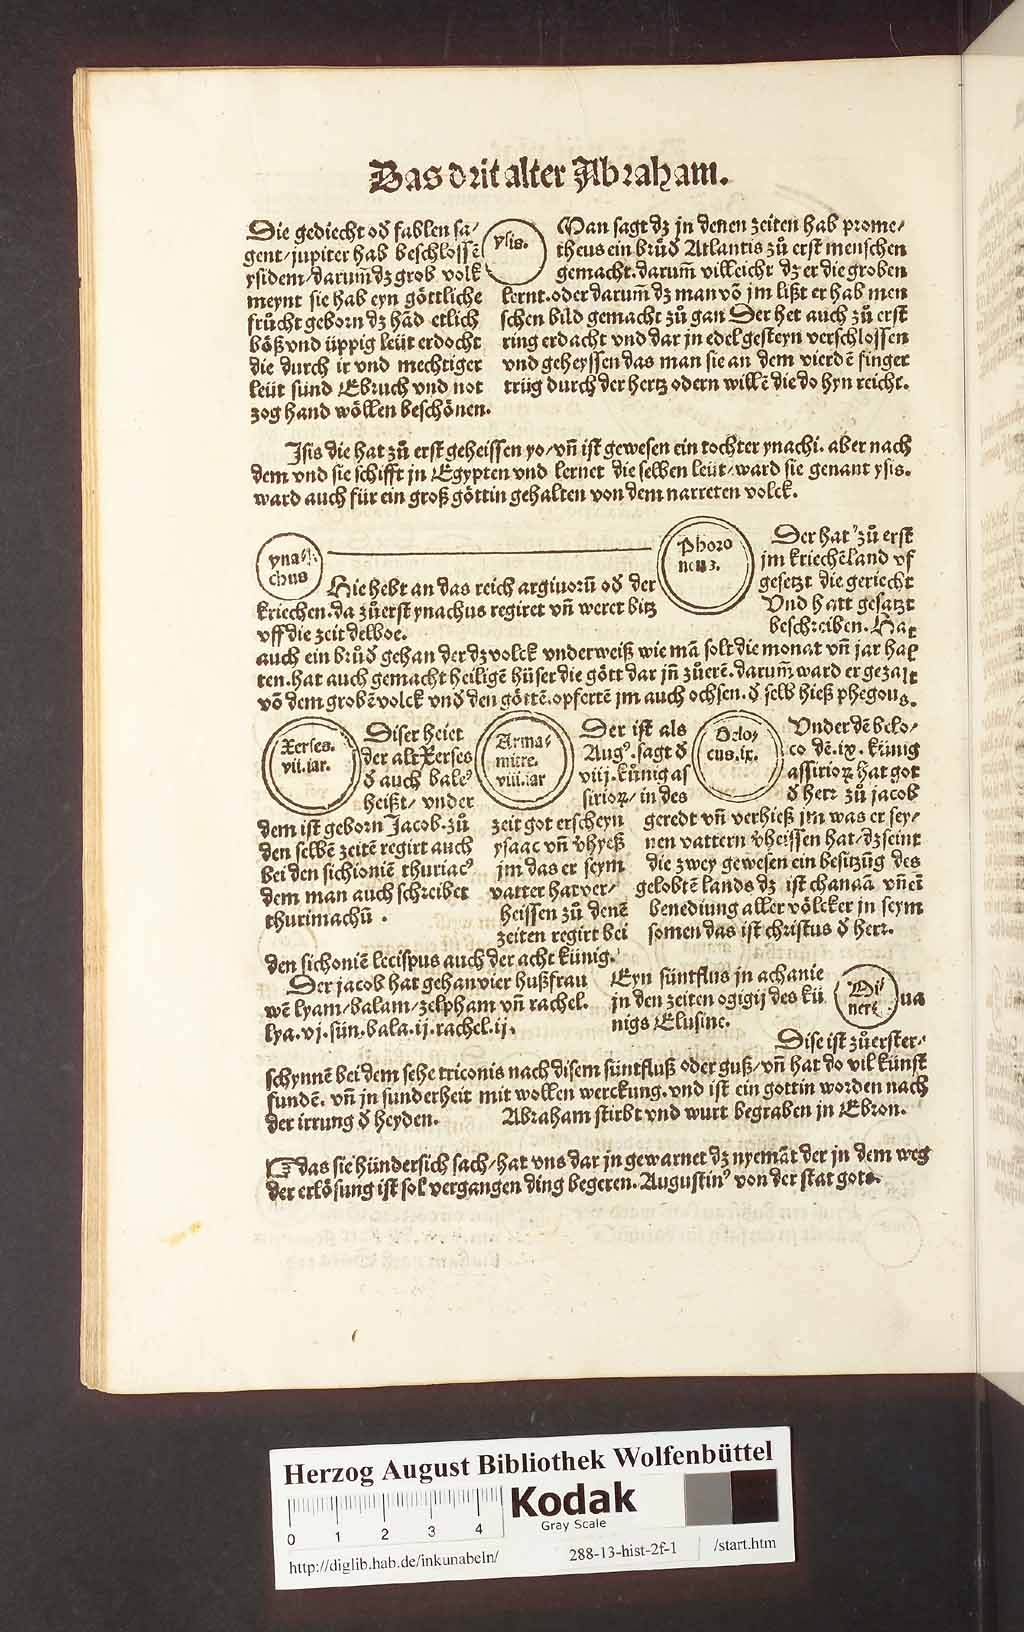 Das drit alter Abraham.
Die gediecht od̄ fablen sa/
gent/jupiter hab beschlossē
ysidem/darum̄ dz grob volk
meynt sie hab eyn göttliche
frücht geborn dz hād etlich
böß vnd üppig leüt erdocht
die durch ir vnd mechtiger
leüt sünd Ebruch vnd not
zog hand wöllen beschönen.
ysis.
Man sagt dz jn denen zeiten hab prome/
theus ein brůd̄ Atlantis zů erst menschen
gemacht. darum̄ villeicht dz er die groben
lernt. oder darum̄ dz man vō jm lißt er hab men
schen bild gemacht zů gan Der het auch zů erst
ring erdacht vnd dar jn edel gesteyn verschlossen
vnd geheyssen das man sie an dem vierdē finger
trüg durch der hertz odern willē die do hyn reicht.
Jsis die hat zů erst geheissen yo/vn̄ ist gewesen ein tochter ynachi. aber nach
dem vnd sie schifft jn Egypten vnd lernet die selben leüt/ward sie genant ysis.
ward auch für ein groß göttin gehalten von dem narreten volck.
yna/
chus
Phoro
neus.
Hie hebt an das reich argiuorū od̄ der
kriechen. da zůerst ynachus regiret vn̄ weret bitz
vff die zeit delboe.
Der hat zů erst
jm kriechēland vf
gesetzt die geriecht
Vnd hatt gesatzt
beschreiben. Hat
auch ein brůd̄ gehan der dz volck vnderweiß wie mā solt die monat vn̄ jar hal
ten. hat auch gemacht heiligē hüser die gött dar jn̄ zůerē. darum̄ ward er gezalt
vō dem grobē volck vnd̄ den göttē. opfertē jm auch ochsen. d̄ selb hieß phegous.
Xerses.
vii. iar.
Diser heiet
der alt Xerses
d̄ auch baleꝰ
heißt/ vnder
dem ist geborn Jacob. zů
den selbē zeitē regirt auch
bei den sichioniē thuriacꝰ
dem man auch schreibet
thurimachū.
Arma/
mitre.
viii. iar
Der ist als
Augꝰ. sagt d̄
viij. künig as
sirioꝝ/ in des
zeit got erscheyn
ysaac vn̄ v̄hyeß
jm das er seym
vatter hat ver/
heissen zů denē
zeiten regirt bei
den sichoniē lecispus auch der acht künig.
Belo/
cus. ix.
Vnder dē belo/
co dē. ix. künig
assirioꝝ hat got
d̄ herr zů jacob
geredt vn̄ verhieß jm was er sey/
nen vattern v̄heissen hat/ dz seint
die zwey gewesen ein besitzūg des
gelobtē lands dz ist chanaā vn̄ eī
benediung aller völcker jn seym
somen das ist christus d̄ herr.
Der jacob hat gehan vier hußfrau
wē lyam/balam/zelpham vn̄ rachel.
lya. vj. sün. bala. ij. rachel. ij.
Eyn süntflus jn achanie
jn den zeiten ogigij des kü
nigs Elusine.
Mi/
nerꝰ
ua
Dise ist zůerster/
schynnē bei dem sehe triconis nach disem süntfluß oder guß/vn̄ hat do vil künst
fundē. vn̄ jn sunderheit mit wollen werckung. vnd ist ein gottin worden nach
der irrung d̄ heyden. Abraham stirbt vnd wurt begraben jn Ebron.
☞ das sie hündersich sach/hat vns dar jn gewarnet dz nyemāt der jn dem weg
der erlösung ist sol vergangen ding begeren. Augustinꝰ von der stat gots.
Herzog August Bibliothek Wolfenbüttel
0 1 2 3 4
Kodak
Gray Scale
http://diglib.hab.de/inkunabeln/ 288-13-hist-2f-1 /start.htm